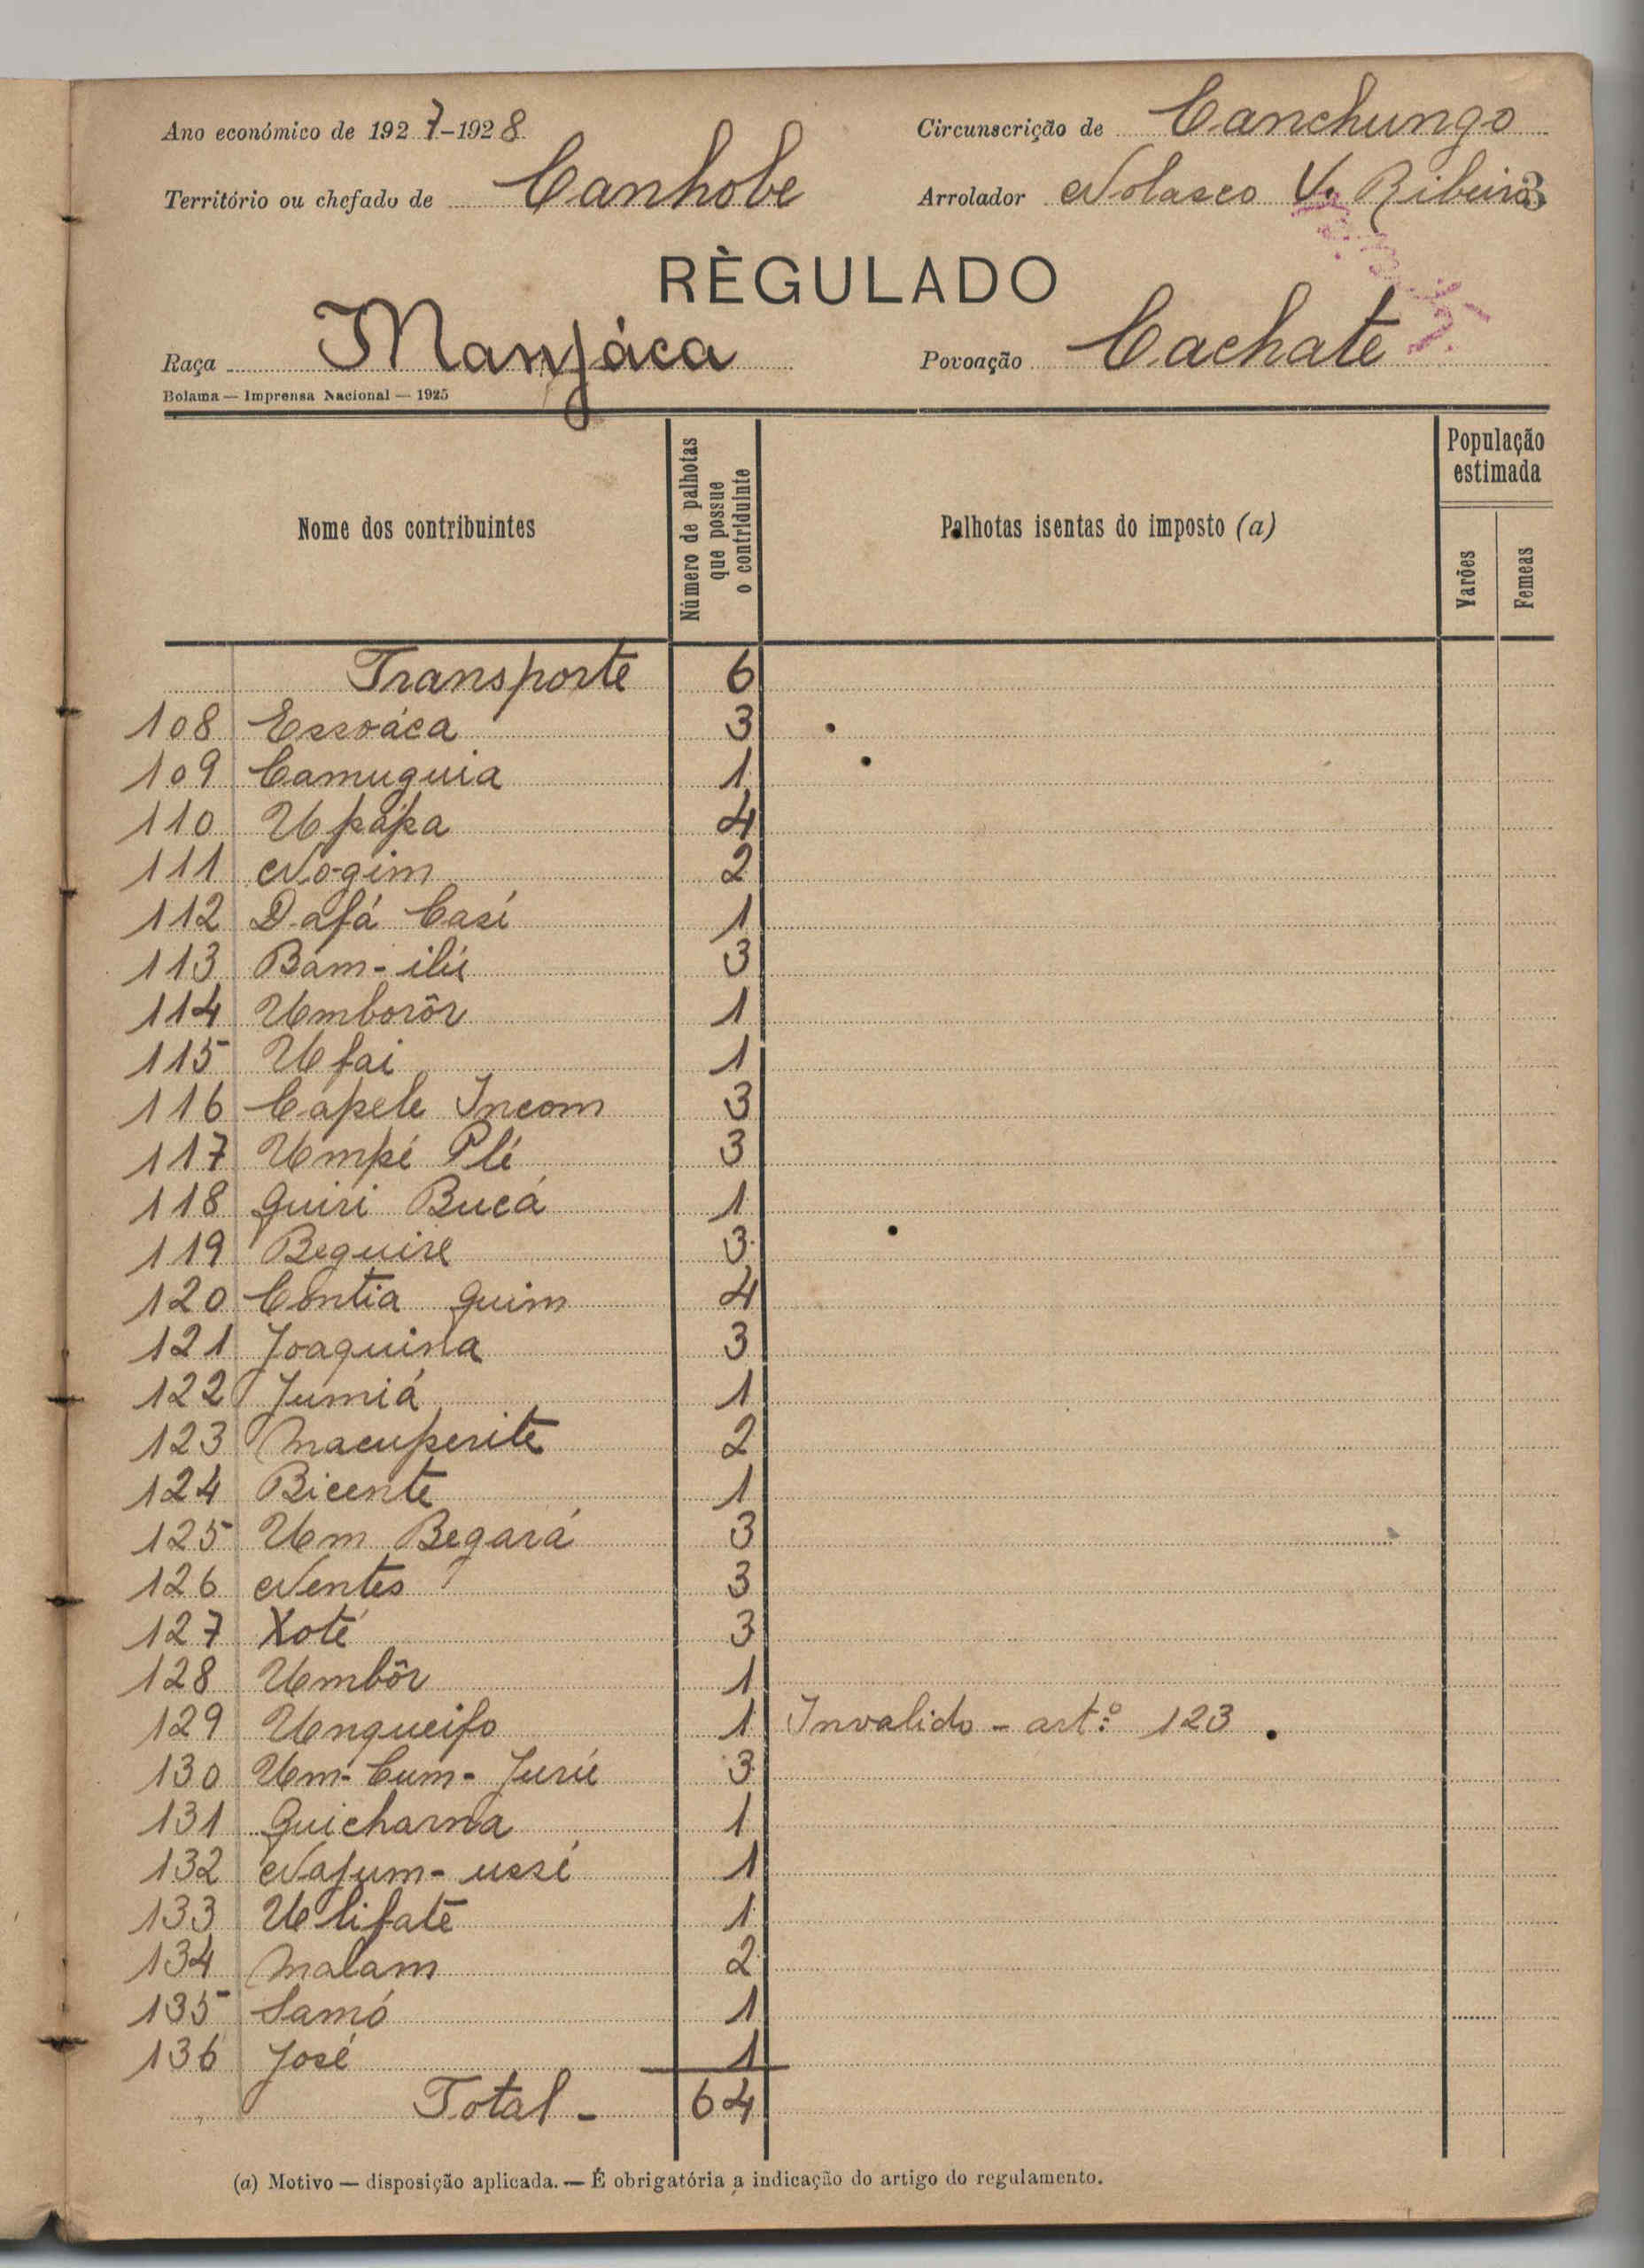 Ano económico de 1927-1928
Circunscrição de Canchungo
Território ou chefado de Canhobe
Arrolador Nolasco V. Ribeiro
3
RÈGULADO
Raça Manjáca
Povoação Cachate
Bolama — Imprensa Nacional — 1925
Nome dos contribuintes
Número de palhotas que possue o contriduinte
Palhotas isentas do imposto (a)
População estimada
Varões
Femeas
Transporte 6
108 Essoáca 3
109 Camuguia 1
110 Upápa 4
111 No-gim 2
112 Dafá Casi 1
113 Bam-ilis 3
114 Umborôr 1
115 Ufai 1
116 Capele Incom 3
117 Umpé Plé 3
118 Quiri Bucá 1
119 Bequire 3
120 Contia Quim 4
121 Joaquina 3
122 Jumiá 1
123 Macuperite 2
124 Bicente 1
125 Um Begará 3
126 Nentes 3
127 Xoté 3
128 Umbôr 1
129 Unqueifo 1 Invalido - artº 123.
130 Um-Cum-Jurú 3
131 Quicharna 1
132 Najum-ussi 1
133 Ulifate 1
134 Malam 2
135 Samó 1
136 José 1
Total - 64
(a) Motivo — disposição aplicada. — É obrigatória a indicação do artigo do regulamento.